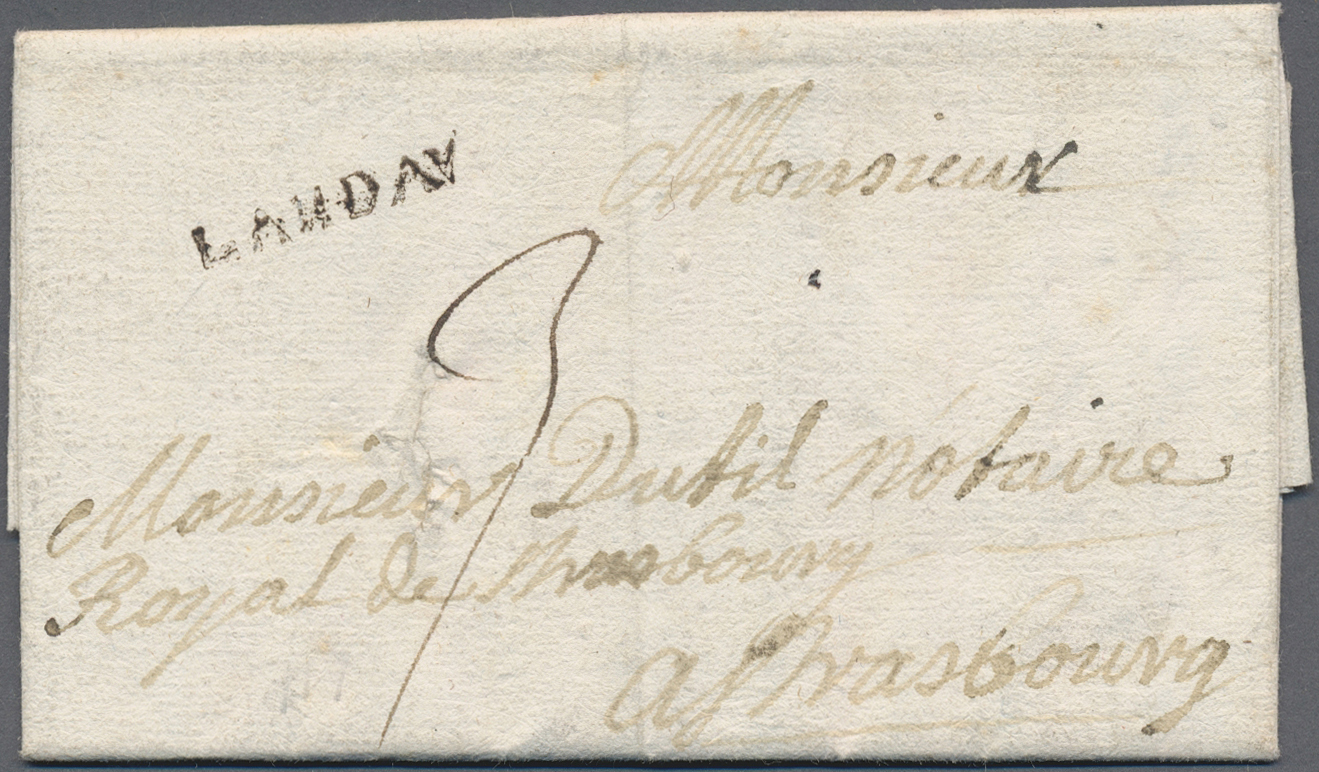 LANDAV
Monsieur
9
Monsieur Dutil notaire
Royal de Strasbourg
a Strasbourg